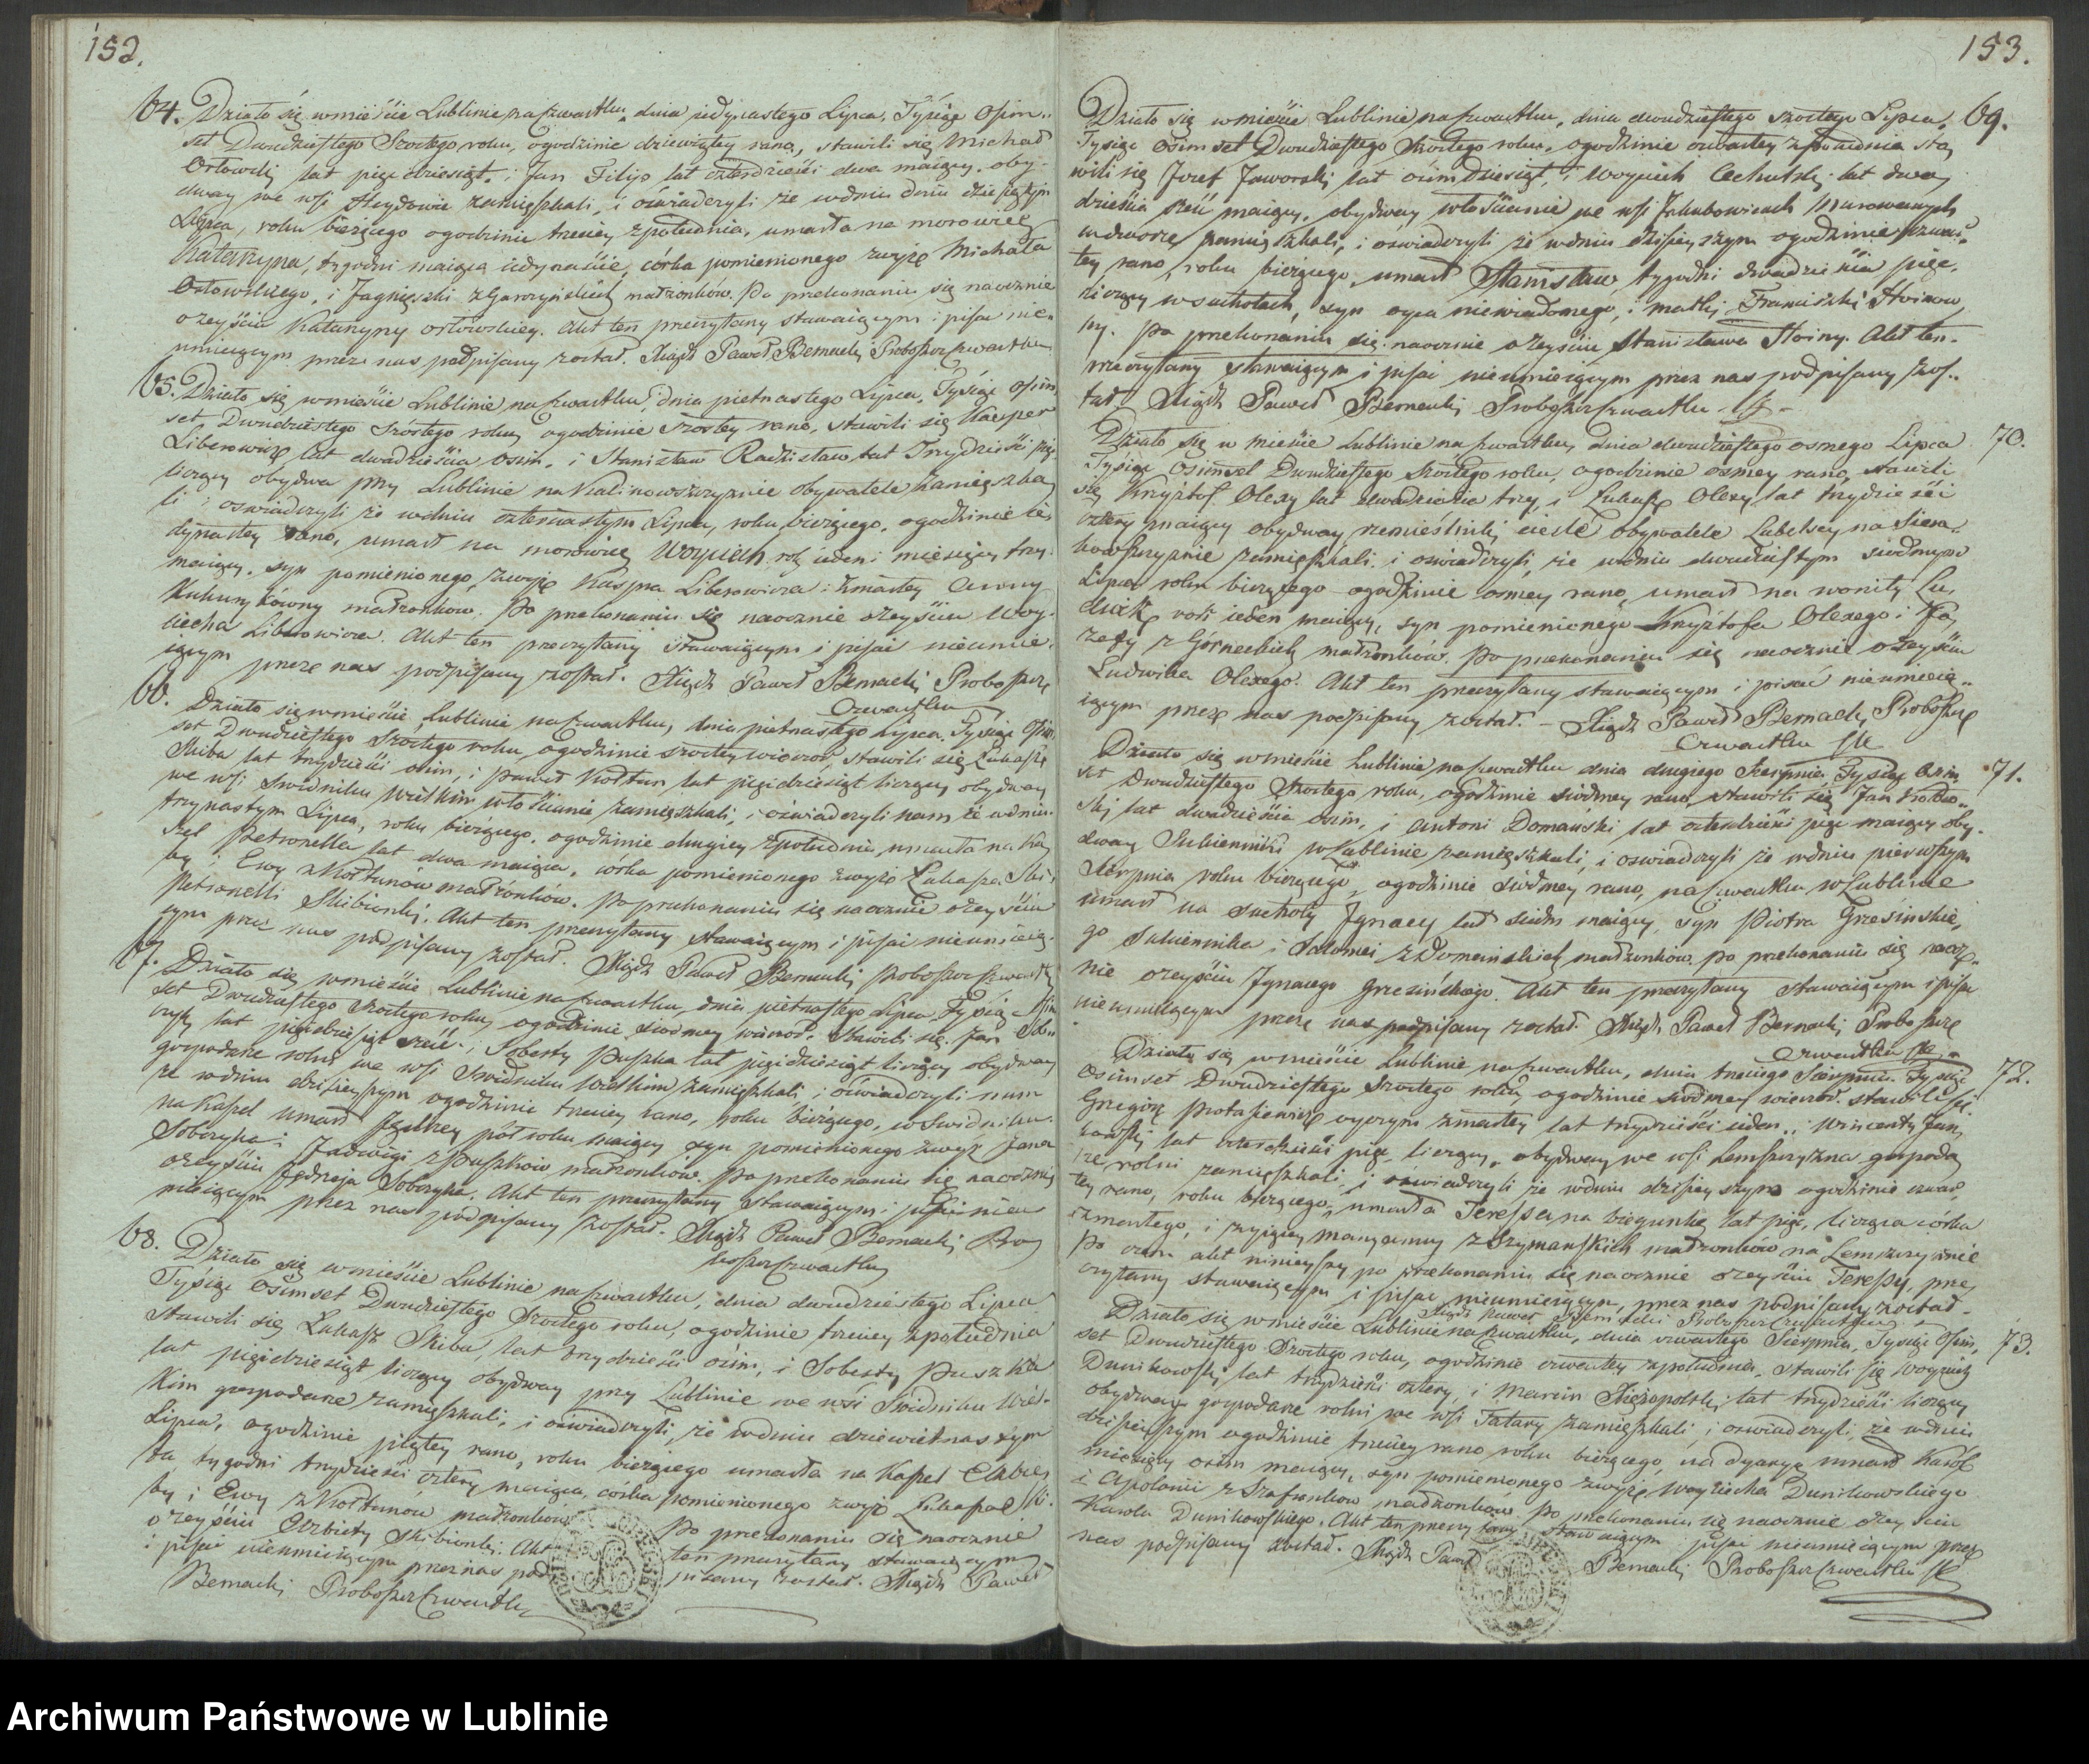 152.
64. Działo się w mieście Lublinie na Czwartku, dnia jedynastego Lipca, Tysiąc Ośm-
set Dwudziestego Szóstego roku, o godzinie dziewiątey rano, stawili się Michał
Orłowski lat pięćdziesiąt, i Jan Filip lat czterdzieści dwa maiący, oby-
dway we wsi zamięszkali, i oświadczyli że w dniu dziesiątym
Lipca, roku bieżącego o godzinie trzeciey z południa, umarła na morowicę
Katarzyna, tygodni maiąca iedynaście, córka pomienionego zwyż Michała
Orłowskiego, i Jagnięszki z małżonków. Po przekonaniu się naocznie
o zeyściu Katarzyny Orłowskiey. Akt ten przeczytany stawaiącym i pisać nie-
umieiącym przez nas podpisany został. Xiądz Paweł Bernacki Proboszcz Czwartku
65. Działo się w mieście Lublinie na Czwartku, dnia piętnastego Lipca, Tysiąc Ośm-
set Dwudziestego Szóstego roku, o godzinie szóstey rano, stawili się Kacper
Liberowicz lat dwadzieścia ośm, i Stanisław Radzisław lat Trzydzieści pięć
liczący obydwa przy Lublinie na Kalinowszczyznie obywatele zamięszka-
li i oświadczyli że w dniu czternastym Lipca, roku bieżącego, o godzinie ie-
dynastey rano, umarł na morowicę Woyciech rok ieden i miesięcy trzy
maiący, syn pomienionego zwyż Kaspra Liberowicza i zmarłey Anny
małżonków. Po przekonaniu się naocznie o zeyściu Woy-
ciecha Liberowicza. Akt ten przeczytany stawaiącym i pisać nieumie-
iącym przez nas podpisany został. Xiądz Paweł Bernacki Proboszcz
Czwartku
66. Działo się w mieście Lublinie na Czwartku, dnia piętnastego Lipca, Tysiąc Ośm-
set Dwudziestego Szóstego roku, o godzinie szóstey wieczor, stawili się Łukasz
Skiba lat trzydzieści ośm, i Paweł Kołtun lat pięćdziesiąt liczący obydway
we wsi Swidniku Wielkim włościanie zamięszkali, i oświadczyli nam że w dniu
trzynastym Lipca, roku bieżącego, o godzinie drugiey z południa, umarła na Ka-
szel Petronella lat dwa maiąca, córka pomienionego zwyż Łukasza Ski-
by i Ewy z Kołtunów małżonków. Po przekonaniu się naocznie o zeyściu
Petronelli Skibionki. Akt ten przeczytany stawaiącym i pisać nieumieią-
cym przez nas podpisany został. Xiądz Paweł Bernacki Proboszcz Czwartku
67. Działo się w mieście Lublinie na Czwartku, dnia piętnastego Lipca, Tysiąc Ośm
set Dwudziestego Szóstego roku, o godzinie siódmey wieczor, Stawili się Jan So-
czyk lat pięćdziesiąt sześć, i Sobesty Puszka lat pięćdziesiąt liczący obydway
gospodarze rolni we wsi Swidniku Wielkim zamięszkali, i oświadczyli nam
że w dniu dzisieyszym o godzinie trzeciey rano, roku bieżącego, w Swidniku
na Kaszel umarł Jędrzey pół roku maiący syn pomienionego zwyż Jana
Sobczyka i Jadwigi z Puszków małżonków. Po przekonaniu się naocznie
o zeyściu Jędrzeja Sobczyka. Akt ten przeczytany stawaiącym i pisać nieu-
mieiącym przez nas podpisany został. Xiądz Paweł Bernacki Pro-
boszcz Czwartku
68. Działo się w mieście Lublinie na Czwartku, dnia dwudziestego Lipca
Tysiąc Ośmset Dwudziestego Szóstego roku, o godzinie trzeciey z południa
stawili się Łukasz Skiba, lat trzydzieści ośm, i Sobesty Puszka
lat pięćdziesiąt liczący obydway przy Lublinie we wsi Swidniku Wiel-
kim gospodarze zamięszkali, i oświadczyli, że w dniu dziewiętnastym
Lipca, o godzinie piątey rano, roku bieżącego umarła na Kaszel Elzbie-
ta, tygodni trzydzieści cztery maiąca, córka pomienionego zwyż Łukasza Ski-
by i Ewy z Kołtunów małżonków. Po przekonaniu się naocznie
o zeyściu Elzbiety Skibionki. Akt ten przeczytany stawaiącym
i pisać nieumieiącym przez nas podpisany został. Xiądz Paweł
Bernacki Proboszcz Czwartku
153.
69. Działo się w mieście Lublinie na Czwartku, dnia dwudziestego szóstego Lipca,
Tysiąc Ośmset Dwudziestego Szóstego roku, o godzinie czwartey z południa sta-
wili się Jozef Jaworski lat ośmdziesiąt, i Woyciech lat dwa-
dzieścia sześć maiący, obydway włościanie we wsi Jakubowicach Murowanych
w dworze zamięszkali, i oświadczyli że w dniu dzisieyszym o godzinie czwar-
tey rano, roku bieżącego, umarł Stanisław, tygodni dwadzieścia pięć
liczący w suchotach, syn oyca niewiadomego, i matki Franciszki
Po przekonaniu się naocznie o zeyściu Stanisława. Akt ten
przeczytany stawaiącym i pisać nieumieiącym przez nas podpisany zos-
tał Xiądz Paweł Bernacki Proboszcz Czwartku
70. Działo się w mieście Lublinie na Czwartku, dnia dwudziestego osmego Lipca
Tysiąc Ośmset Dwudziestego Szóstego roku, o godzinie osmey rano, stawili
się Krzysztof Olexy lat dwadzieścia trzy, i Łukasz Olexy lat trzydzieści
cztery maiący obydway rzemieślnicy cieśle obywatele Lubelscy na Siera-
kowszczyznie zamięszkali, i oświadczyli, że w dniu dwudziestym siódmym
Lipca roku bieżącego o godzinie osmey rano, umarł na womity Lu-
dwik, rok ieden maiący, syn pomienionego Krzysztofa Olexego i Jó-
zefy z Górneckich małżonków. Po przekonaniu się naocznie o zeyściu
Ludwika Olexego. Akt ten przeczytany stawaiącym i pisać nieumieią-
iącym przez nas podpisany został. Xiądz Paweł Bernacki Proboszcz
Czwartku
71. Działo się w mieście Lublinie na Czwartku dnia drugiego Sierpnia, Tysiąc Ośm
set Dwudziestego Szóstego roku, o godzinie siódmey rano, stawili się Jan
lat dwadzieścia ośm, i Antoni Domański lat czterdzieści pięć maiący oby-
dway Sukiennicy w Lublinie zamięszkali, i oświadczyli że w dniu pierwszym
Sierpnia roku bieżącego, o godzinie siódmey rano, na Czwartku w Lublinie
umarł na suchoty Jgnacy lat siedm maiący, syn Piotra Grzesinskie-
go Sukiennika i Salomei z Domanskich małżonków. Po przekonaniu się naocz-
nie o zeyściu Jgnacego Grzesińskiego. Akt ten przeczytany stawaiącym i pisać
nieumieiącym przez nas podpisany został. Xiądz Paweł Bernacki Proboszcz
Czwartku
72. Działo się w mieście Lublinie na Czwartku, dnia trzeciego Sierpnia, Tysiąc
Ośmset Dwudziestego Szóstego roku, o godzinie siódmey wieczor, stawili się
Grzegorz Protasiewicz oyczym zmarłey lat trzydzieści ieden, i Wincenty Jan-
kowski lat czterdzieści pięć liczący, obydway we wsi Lemszczyzna gospoda-
rze rolni zamięszkali, i oświadczyli że w dniu dzisieyszym o godzinie czwar-
tey rano, roku bieżącego, umarła Teressa na biegunkę lat pięć licząca córka
zmarłego, i żyiącey Maryanny z Szymańskich małżonków na Lemszczyznie
Po czem akt ninieyszy po przekonaniu się naocznie o zeyściu Teressy, prze-
czytany stawaiącym i pisać nieumieiącym, przez nas podpisany został.
Xiądz Paweł Bernacki Proboszcz Czwartku
73. Działo się w mieście Lublinie na Czwartku, dnia czwartego Sierpnia, Tysiąc Ośm-
set Dwudziestego Szóstego roku, o godzinie czwartey z południa, stawili się Woyciech
Dunikowski, lat trzydzieści cztery, i Marcin Xiężopolski lat trzydzieści liczący
obydway gospodarze rolni we wsi Tatary zamięszkali, i oświadczyli, że w dniu
dzisieyszym o godzinie trzeciey rano roku bieżącego, na dyaryę umarł Karól
miesięcy ośm maiący, syn pomienionego zwyż Woyciecha Dunikowskiego
i Apolonii z Szafrankow małżonków. Po przekonaniu się naocznie o zeyściu
Karola Dunikowskiego. Akt ten przeczytany stawaiącym pisać nieumieiącym przez
nas podpisany został. Xiądz Paweł Bernacki Proboszcz Czwartku
Archiwum Państwowe w Lublinie